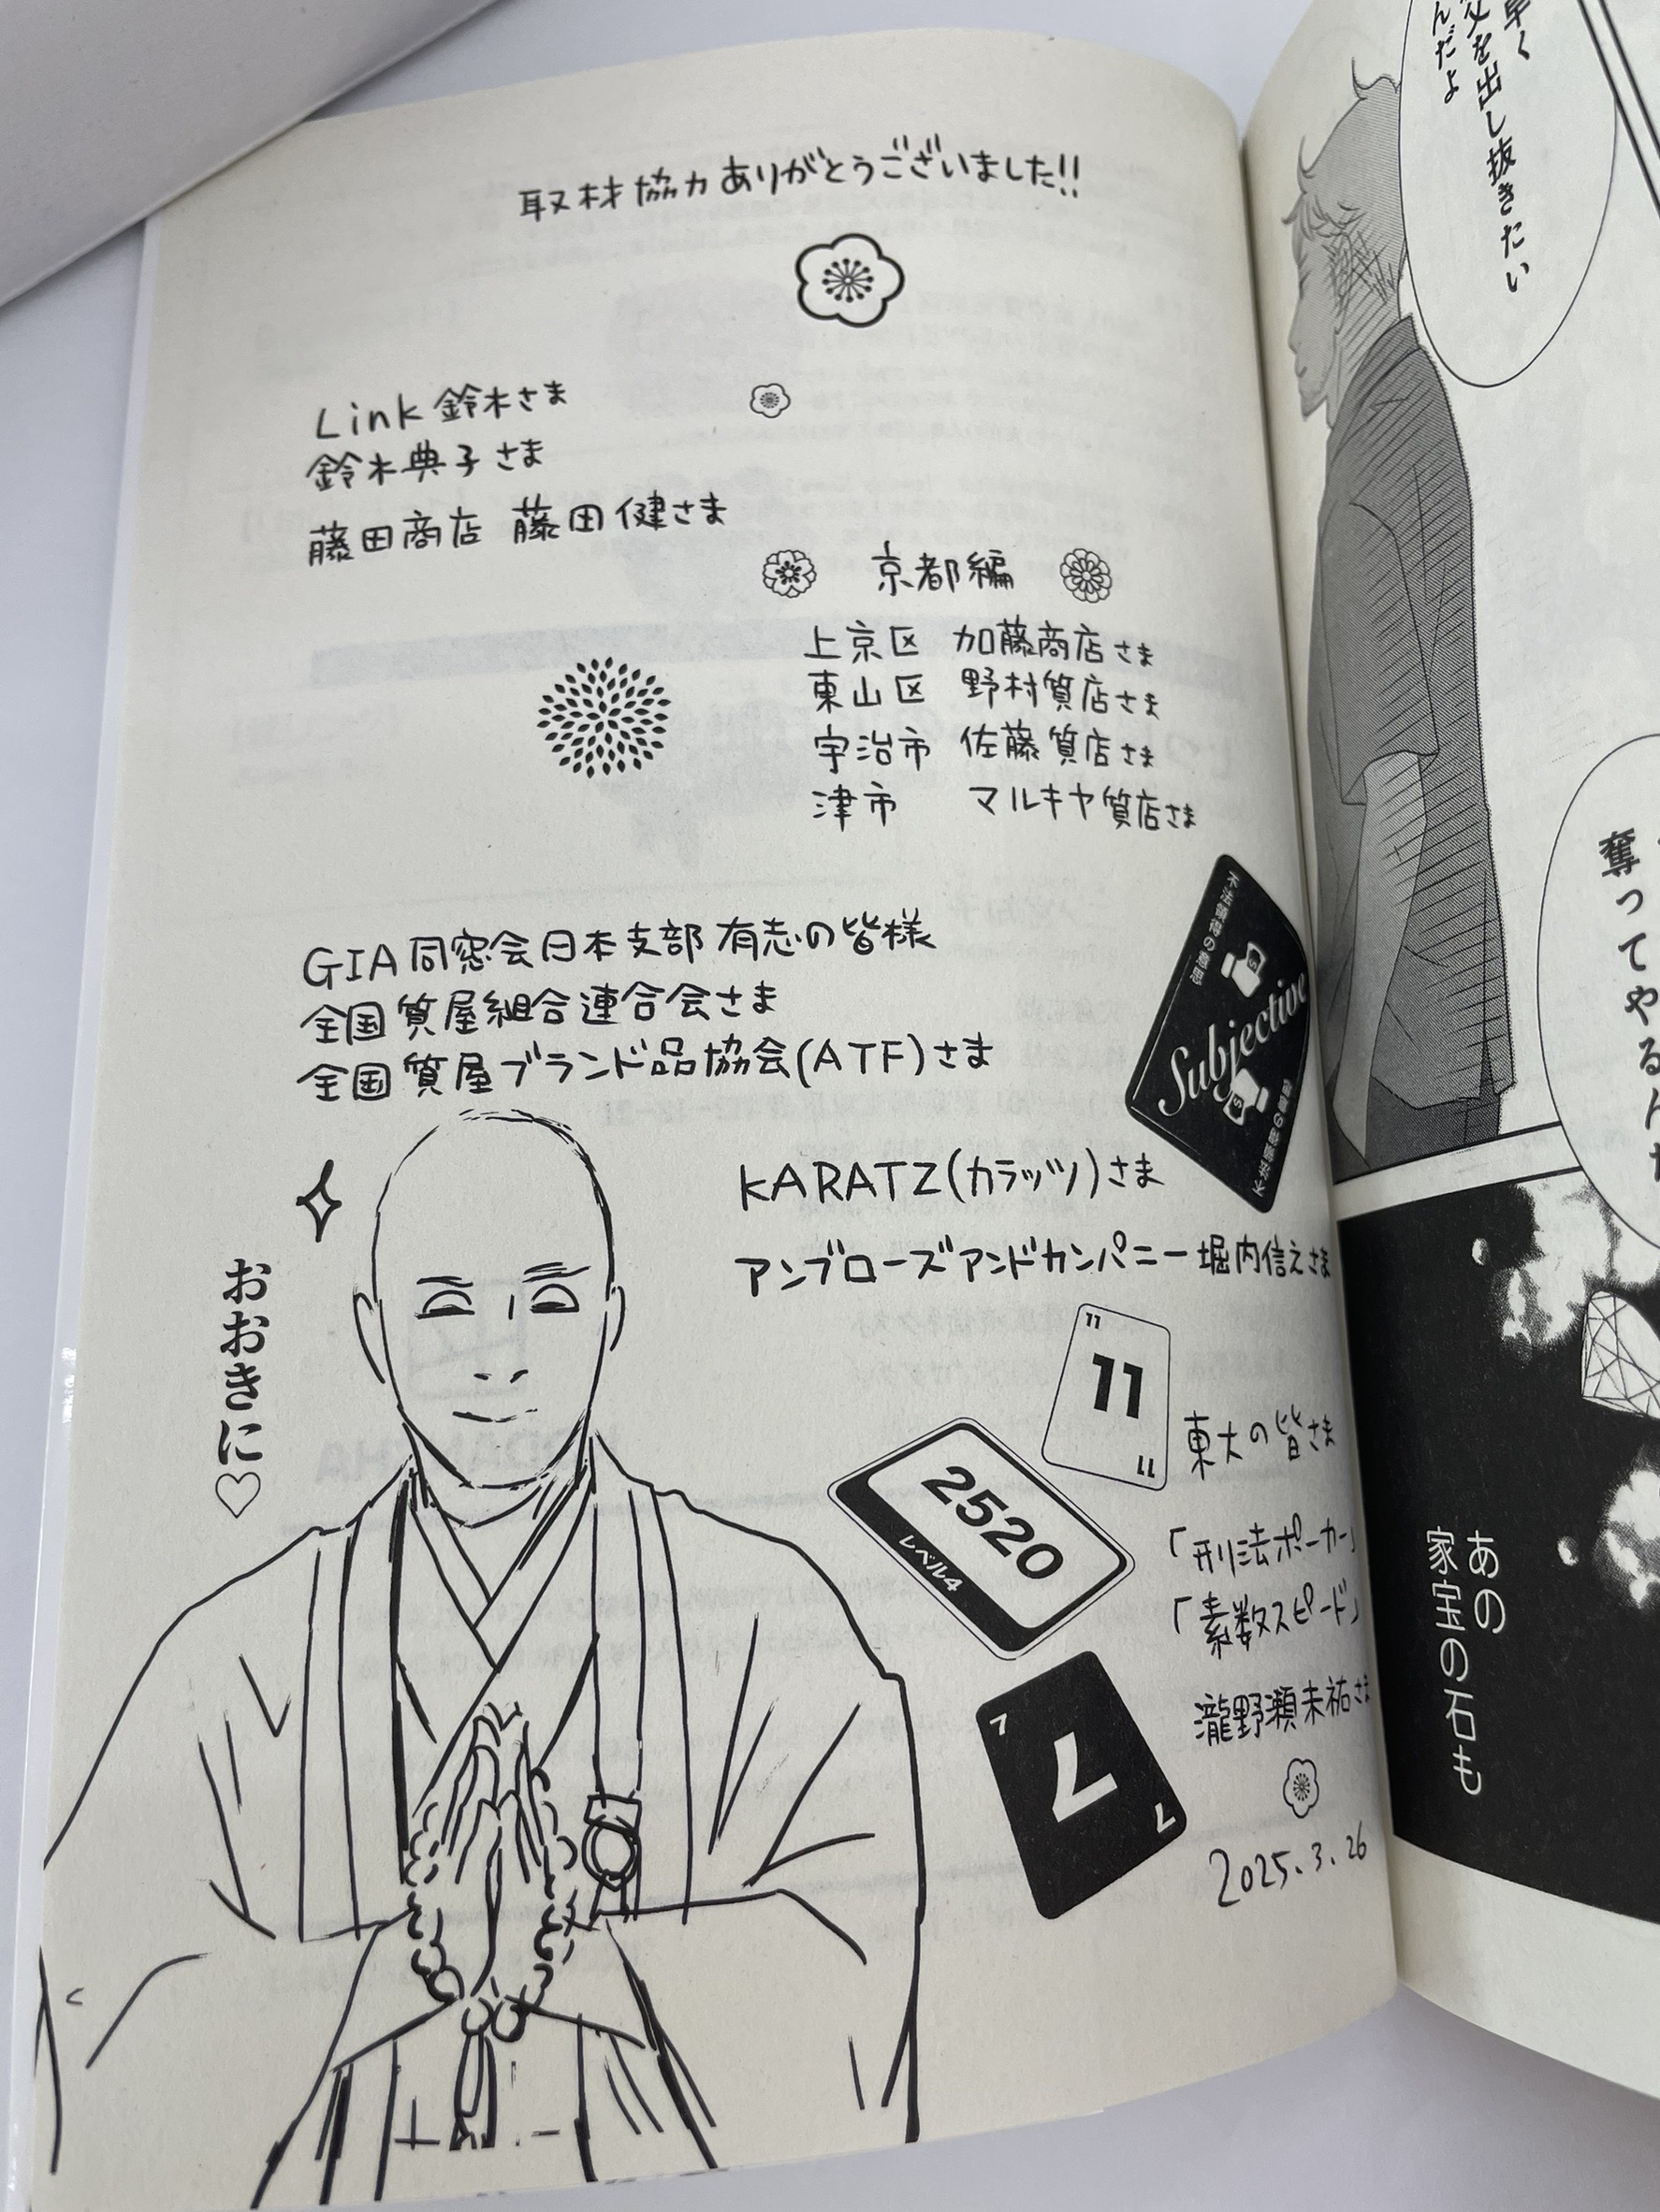 取材協力ありがとうございました!!
Link 鈴木さま
鈴木典子さま
藤田商店 藤田健さま
京都編
上京区 加藤商店さま
東山区 野村質店さま
宇治市 佐藤質店さま
津市 マルキヤ質店さま
GIA同窓会日本支部 有志の皆様
全国質屋組合連合会さま
全国質屋ブランド品協会(ATF)さま
Subjective
KARATZ(カラッツ)さま
アンブローズアンドカンパニー 堀内信えさま
おおきに♡
11
11
11
東大の皆さま
2520
レベル4
「刑法ポーカー」
「素数スピード」
7
7
7
瀧野瀬未祐さま
2025.3.26
早く
父を出し抜きたい
んだよ
奪ってやるんだ
あの
家宝の石も